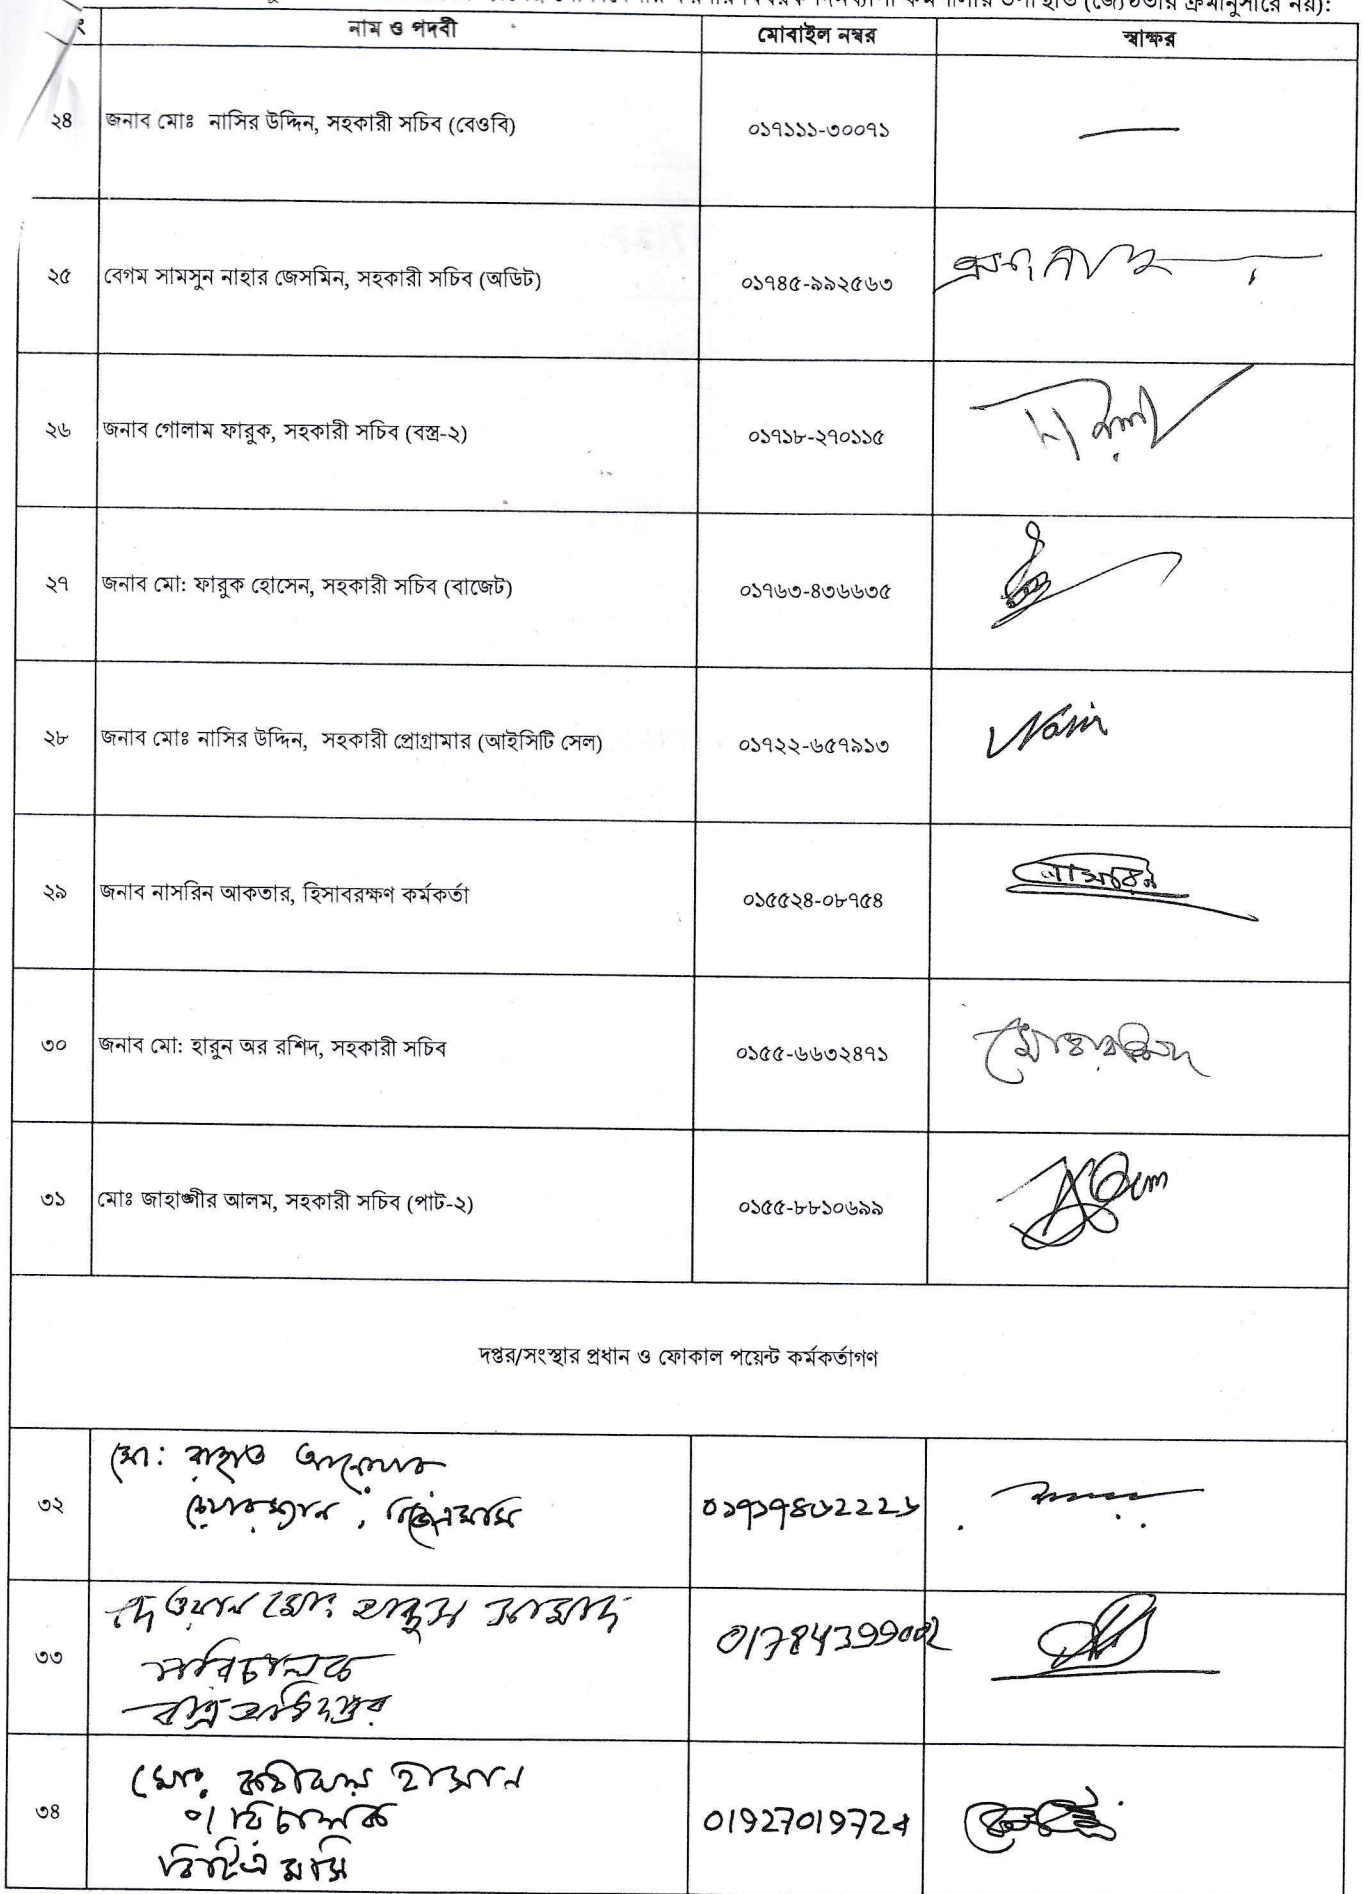 (জ্যেষ্ঠতার ক্রমানুসারে নয়):
নাম ও পদবী মোবাইল নম্বর স্বাক্ষর
২৪ জনাব মোঃ নাসির উদ্দিন, সহকারী সচিব (বেওবি) ০১৭১১১-৩০০৭১
২৫ বেগম সামসুন নাহার জেসমিন, সহকারী সচিব (অডিট) ০১৭৪৫-৯৯২৫৬৩
২৬ জনাব গোলাম ফারুক, সহকারী সচিব (বস্ত্র-২) ০১৭১৮-২৭০১১৫
২৭ জনাব মো: ফারুক হোসেন, সহকারী সচিব (বাজেট) ০১৭৬৩-৪৩৬৬৩৫
২৮ জনাব মোঃ নাসির উদ্দিন, সহকারী প্রোগ্রামার (আইসিটি সেল) ০১৭২২-৬৫৭৯১৩ Nasir
২৯ জনাব নাসরিন আকতার, হিসাবরক্ষণ কর্মকর্তা ০১৫৫২৪-০৮৭৫৪ নাসরিন
৩০ জনাব মো: হারুন অর রশিদ, সহকারী সচিব ০১৫৫-৬৬৩২৪৭১
৩১ মোঃ জাহাঙ্গীর আলম, সহকারী সচিব (পাট-২) ০১৫৫-৮৮১০৬৯৯
দপ্তর/সংস্থার প্রধান ও ফোকাল পয়েন্ট কর্মকর্তাগণ
৩২ মো:
চেয়ারম্যান, বিজেএমসি
৩৩ দেওয়ান মোঃ 01784399002
পরিচালক
বস্ত্র অধিদপ্তর
৩৪ মোঃ হাসান
পরিচালক 01927019724
বিটিএমসি